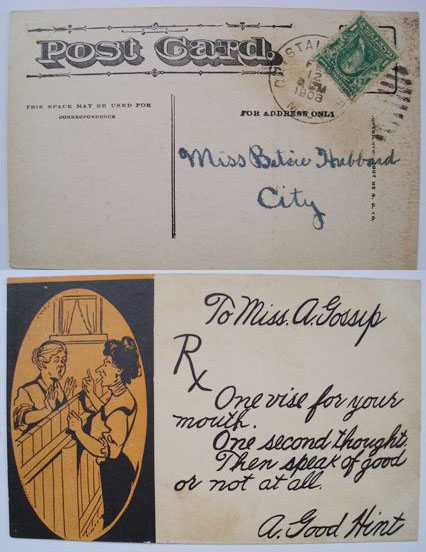 Post Card.
THIS SPACE MAY BE USED FOR
CORRESPONDENCE
FOR ADDRESS ONLY
12
1908
Miss Betsie Hubbard
City
To Miss. A. Gossip
Rx
One vise for your
mouth.
One second thought.
Then speak of good
or not at all.
A. Good Hint